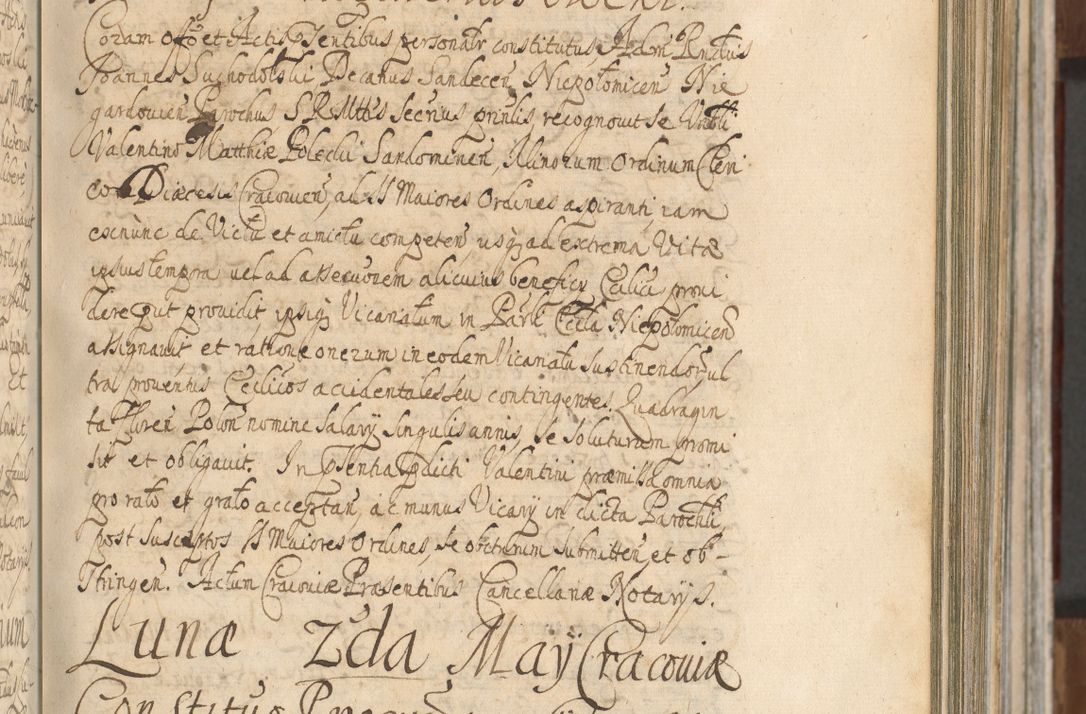 Coram Offo et Actis Psentibus personalr constitutus, Adm Rndus
Joannes Suchodolski Decanus Sandecen Niepołomicen Nie
gardovien Parochus S R Mttis Secrius prinlis recognovit se Vnbli
Valentino Matthiæ Polecki Sandomirien, Minorum Ordinum Cleri
co Diæcesis Cracovien, ad SS Maiores Ordines aspiranti iam
exnunc de Victu et amictu competen usq ad extrema Vitæ
ipsius tempora vel ad assecuonem alicuius beneficy Ecclici provi
dere put providit ipsiq Vicariatum in Parli Eccla Niepołomicen
assignavit et ratione onerum in eodem Vicariatu sustinendor ul
tra proventus Ecclicos accidentales seu contingentes. Quadragin
ta Floren Polon nomine Salary singulis annis, se soluturum promi
sit et obligavit. In Psentia pdicti Valentini præmissa omnia
pro rato et grato acceptan, ac munus Vicary in dicta Parochli,
post susceptos SS Maiores Ordines, se obiturum submitten et ob-
stringen. Actum Cracoviæ Præsentibus Cancellariæ Notarys.
Lunæ 2da Maÿ Cracoviæ
Constitutus